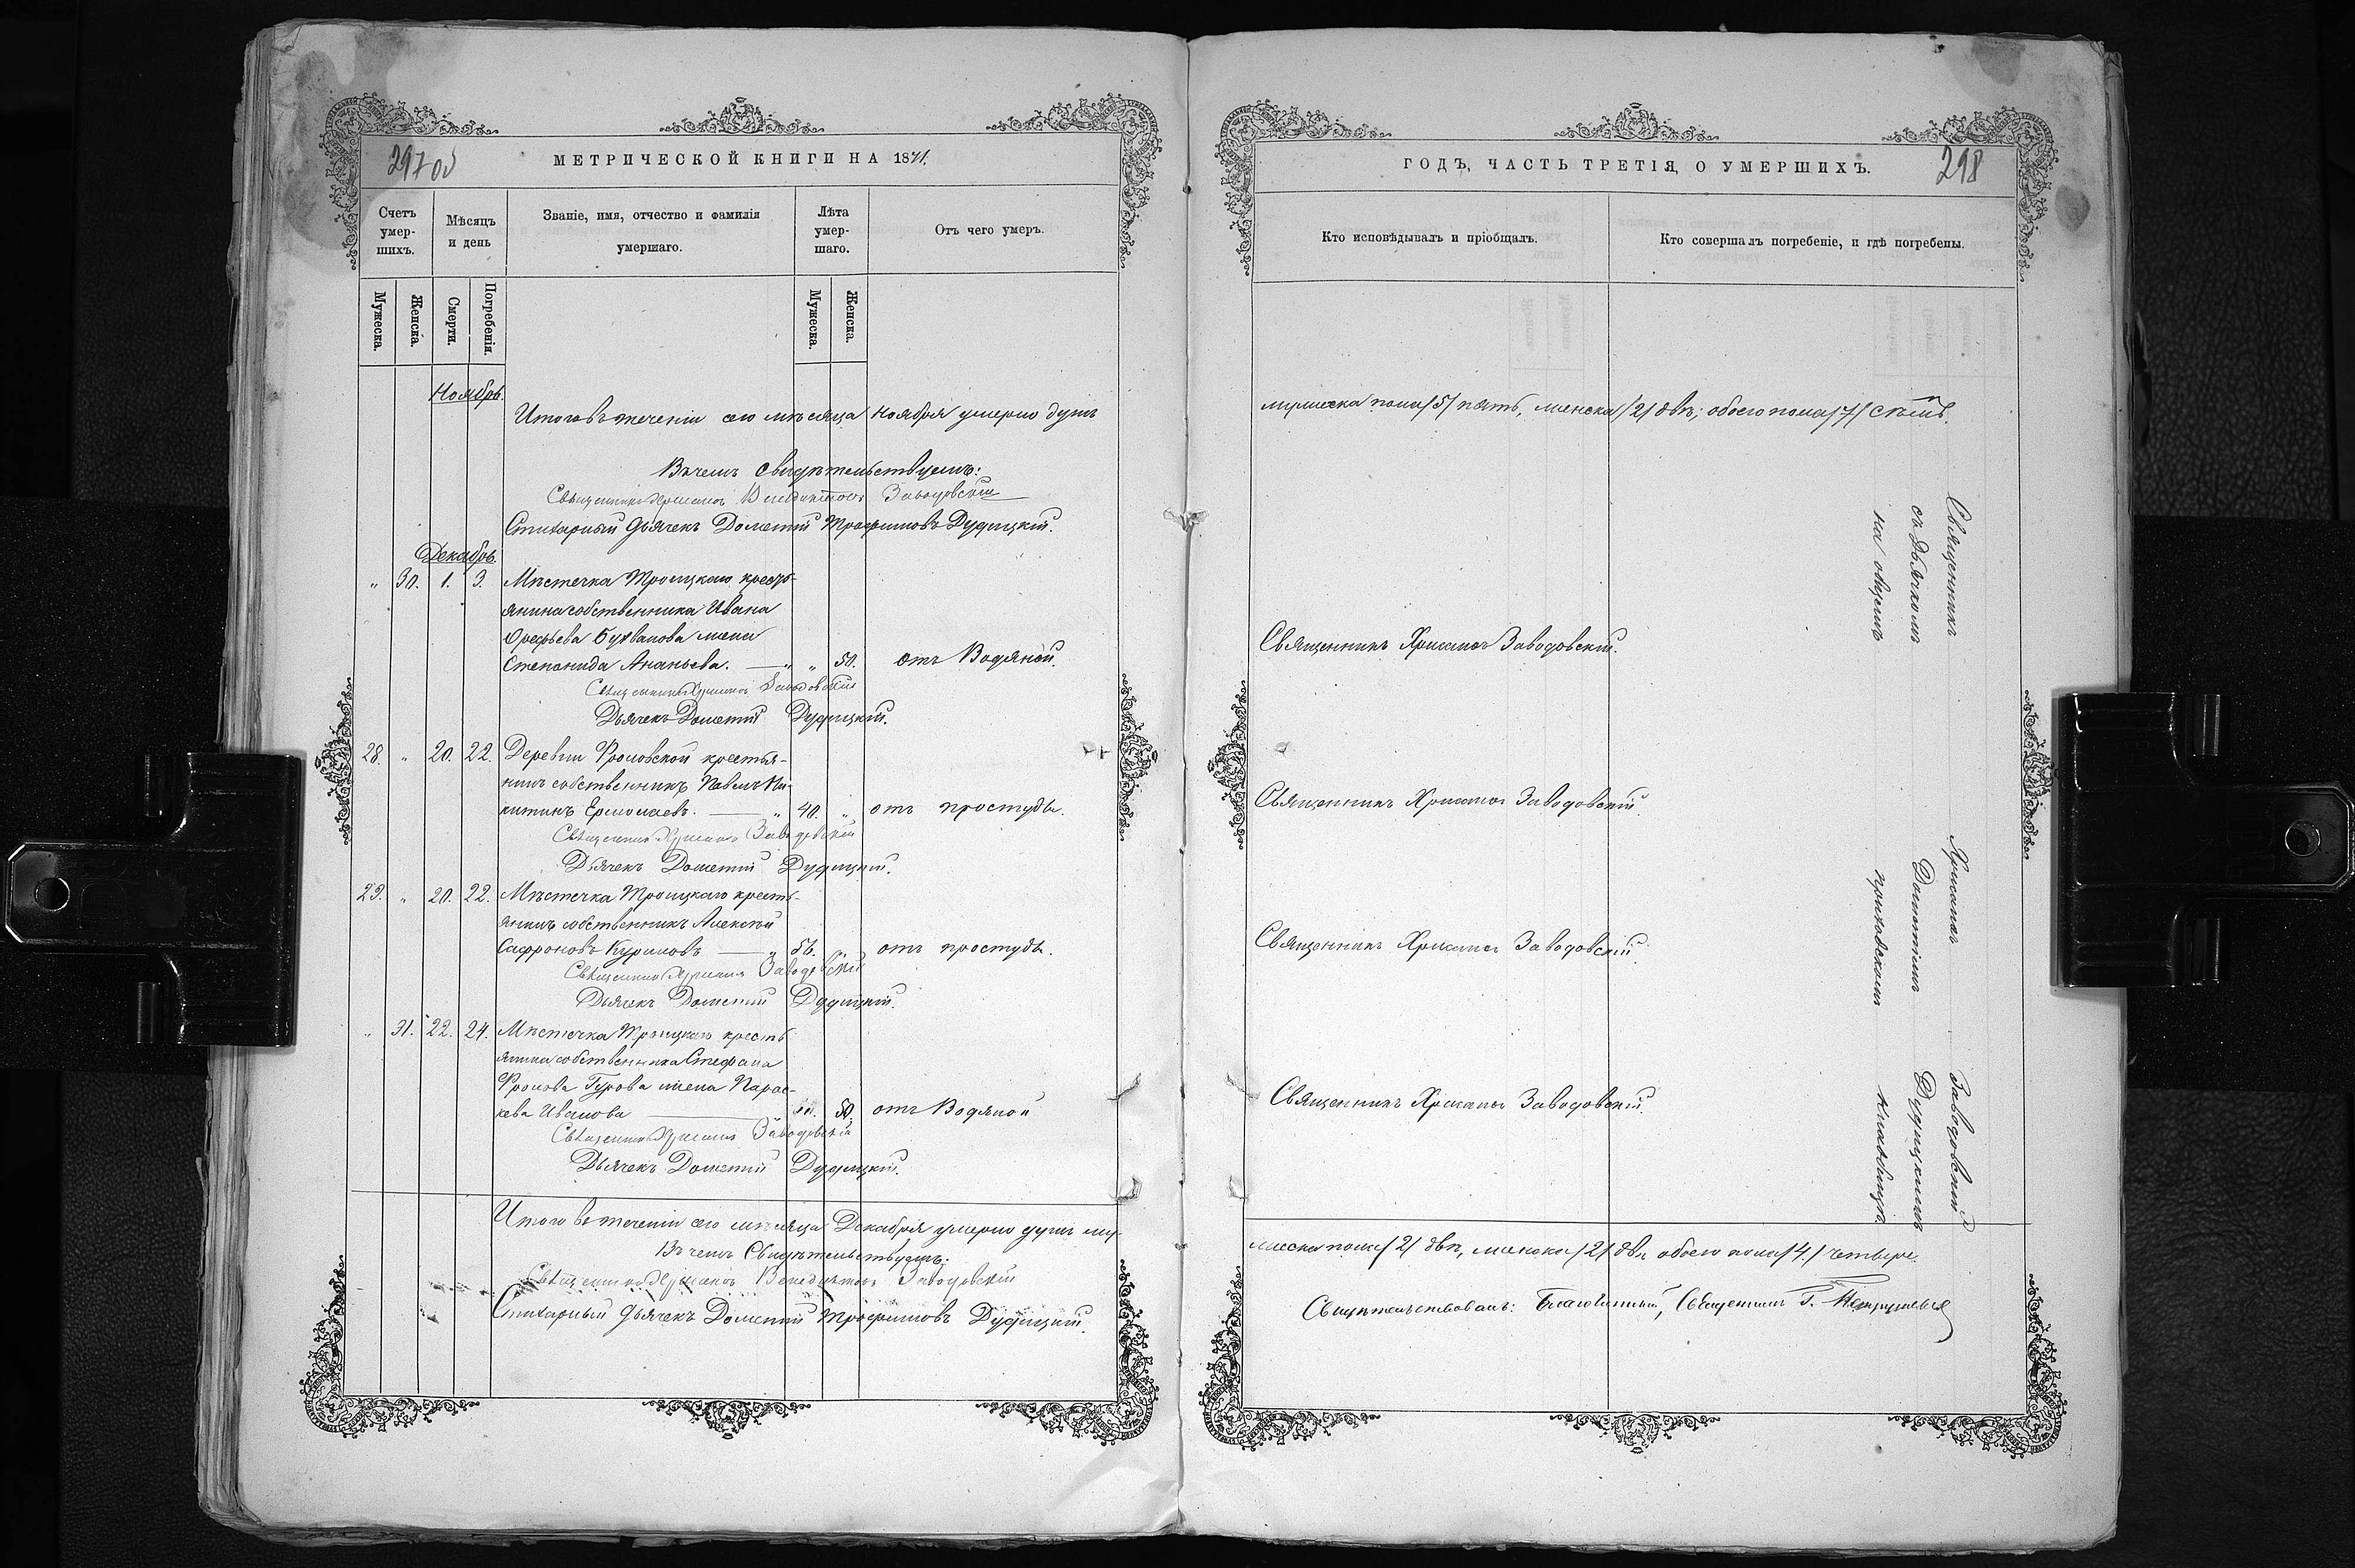 297 об
МЕТРИЧЕСКОЙ КНИГИ НА 1871.
Счетъ умер-
шихъ.
Мѣсяцъ
и день
Званіе, имя, отчество и фамилія
умершаго.
Лѣта
умер-
шаго.
Отъ чего умеръ.
Мужеска.
Женска.
Смерти.
Погребенія.
Мужеска.
Женска.
Ноябрь.
Итого въ теченіи сего мѣсяца Ноября умерло душъ
Въ чемъ свидѣтельствуемъ:
Священникъ Хрисанѳъ Заводовскій
Стихарный Дьячекъ Дометій Трофимовъ Дудицкій.
Декабрь.
„ 30. 1. 3. Мѣстечка Троицкаго кресть-
янина собственника Ивана
Орефьева жена
Степанида Ананьева. — „ „ 50. отъ Водяной.
Священникъ Хрисанѳъ Заводовскій
Дьячекъ Дометій Дудицкій.
28. „ 20. 22. Деревни Фроловской крестья-
нинъ собственникъ Павелъ Ни-
китинъ Ермолаевъ. — „ 40. „ отъ простуды.
Священникъ Хрисанѳъ Заводовскій
Дьячекъ Дометій Дудицкій.
29. „ 20. 22. Мѣстечка Троицкаго кресть-
янинъ собственникъ Алексѣй
Сафроновъ Куриловъ — „ 56. „ отъ простуды.
Священникъ Хрисанѳъ Заводовскій
Дьячекъ Дометій Дудицкій.
„ 31. 22. 24. Мѣстечка Троицкаго кресть
янина собственника Стефана
Фролова Гурова жена Парас-
кева Иванова — „ „ 50. отъ Водяной
Священникъ Хрисанѳъ Заводовскій
Дьячекъ Дометій Дудицкій.
Итого въ теченіи сего мѣсяца Декабря умерло душъ му-
Въ чемъ Свидѣтельствуемъ:
Священникъ Хрисанѳъ Заводовскій
Стихарный Дьячекъ Дометій Трофимовъ Дудицкій.
298
ГОДЪ, ЧАСТЬ ТРЕТІЯ, О УМЕРШИХЪ.
Кто исповѣдывалъ и пріобщалъ.
Кто совершалъ погребеніе, и гдѣ погребены.
мужеска пола /5/ пять, женска /2/ двѣ; обоего пола /7/ семь.
Священникъ Хрисанѳъ Заводовскій.
Священникъ Хрисанѳъ Заводовскій.
Священникъ Хрисанѳъ Заводовскій.
Священникъ Хрисанѳъ Заводовскій.
Священникъ Хрисанѳъ Заводовскій
съ Дьячкомъ Дометіемъ Дудицкимъ
на общемъ приходскомъ кладбищѣ.
жеска пола /2/ два, женска /2/ двѣ обоего пола /4/ четыре.
Свидѣтельствовалъ: Благочинный, Священникъ Г.